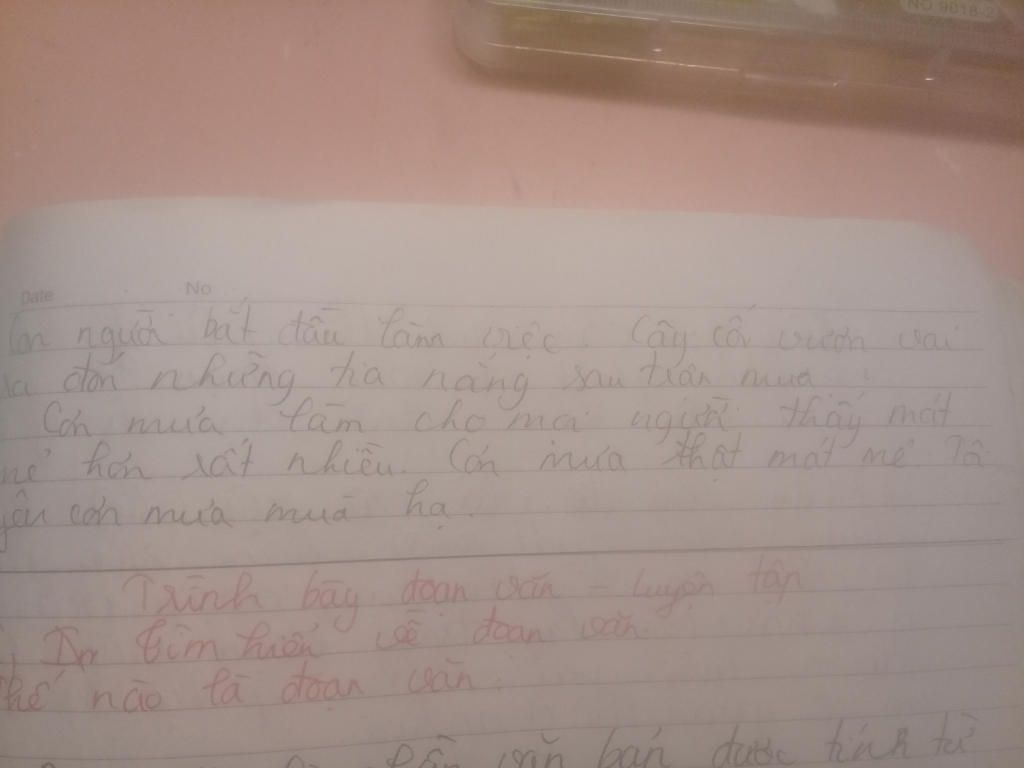 NO 9018-2
Date No
Con người bắt đầu làm việc. Cây cối vươn vai
ra đón những tia nắng sau trận mưa.
Cơn mưa làm cho mọi người thấy mát
mẻ hơn rất nhiều. Cơn mưa thật mát mẻ. Tôi
yêu cơn mưa mùa hạ.
Trình bày đoạn văn - luyện tập
tìm hiểu về đoạn văn.
Thế nào là đoạn văn.
phần văn bản được tính từ